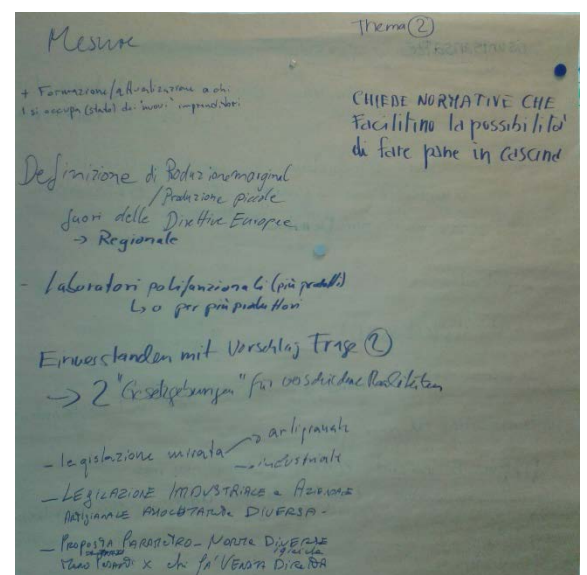 Thema ②
Mesure
+ Formazione/attualizzazione a chi
si occupa (stato) dei "nuovi" imprenditori
CHIEDE NORMATIVE CHE
Facilitino la possibilità
di fare pane in cascina
Definizione di Produzione marginal
/ Produzione piccole
fuori delle Direttive Europee
→ Regionale
- Laboratori polifunzionali (più prodotti)
↳ o per più produttori
Einverstanden mit Vorschlag Frage ②
→ 2 "Gesetzgebungen" für verschiedene Realitäten
- legislazione mirata → artigianale
→ industriale
- LEGILAZIONE INDUSTRIALE e AZIENDE
ARTIGIANALE DIVERSA -
- PROPOSTA PARAMETRO - NORME DIVERSE
igieniche
MENO x chi FA' VENDITA DIRETTA